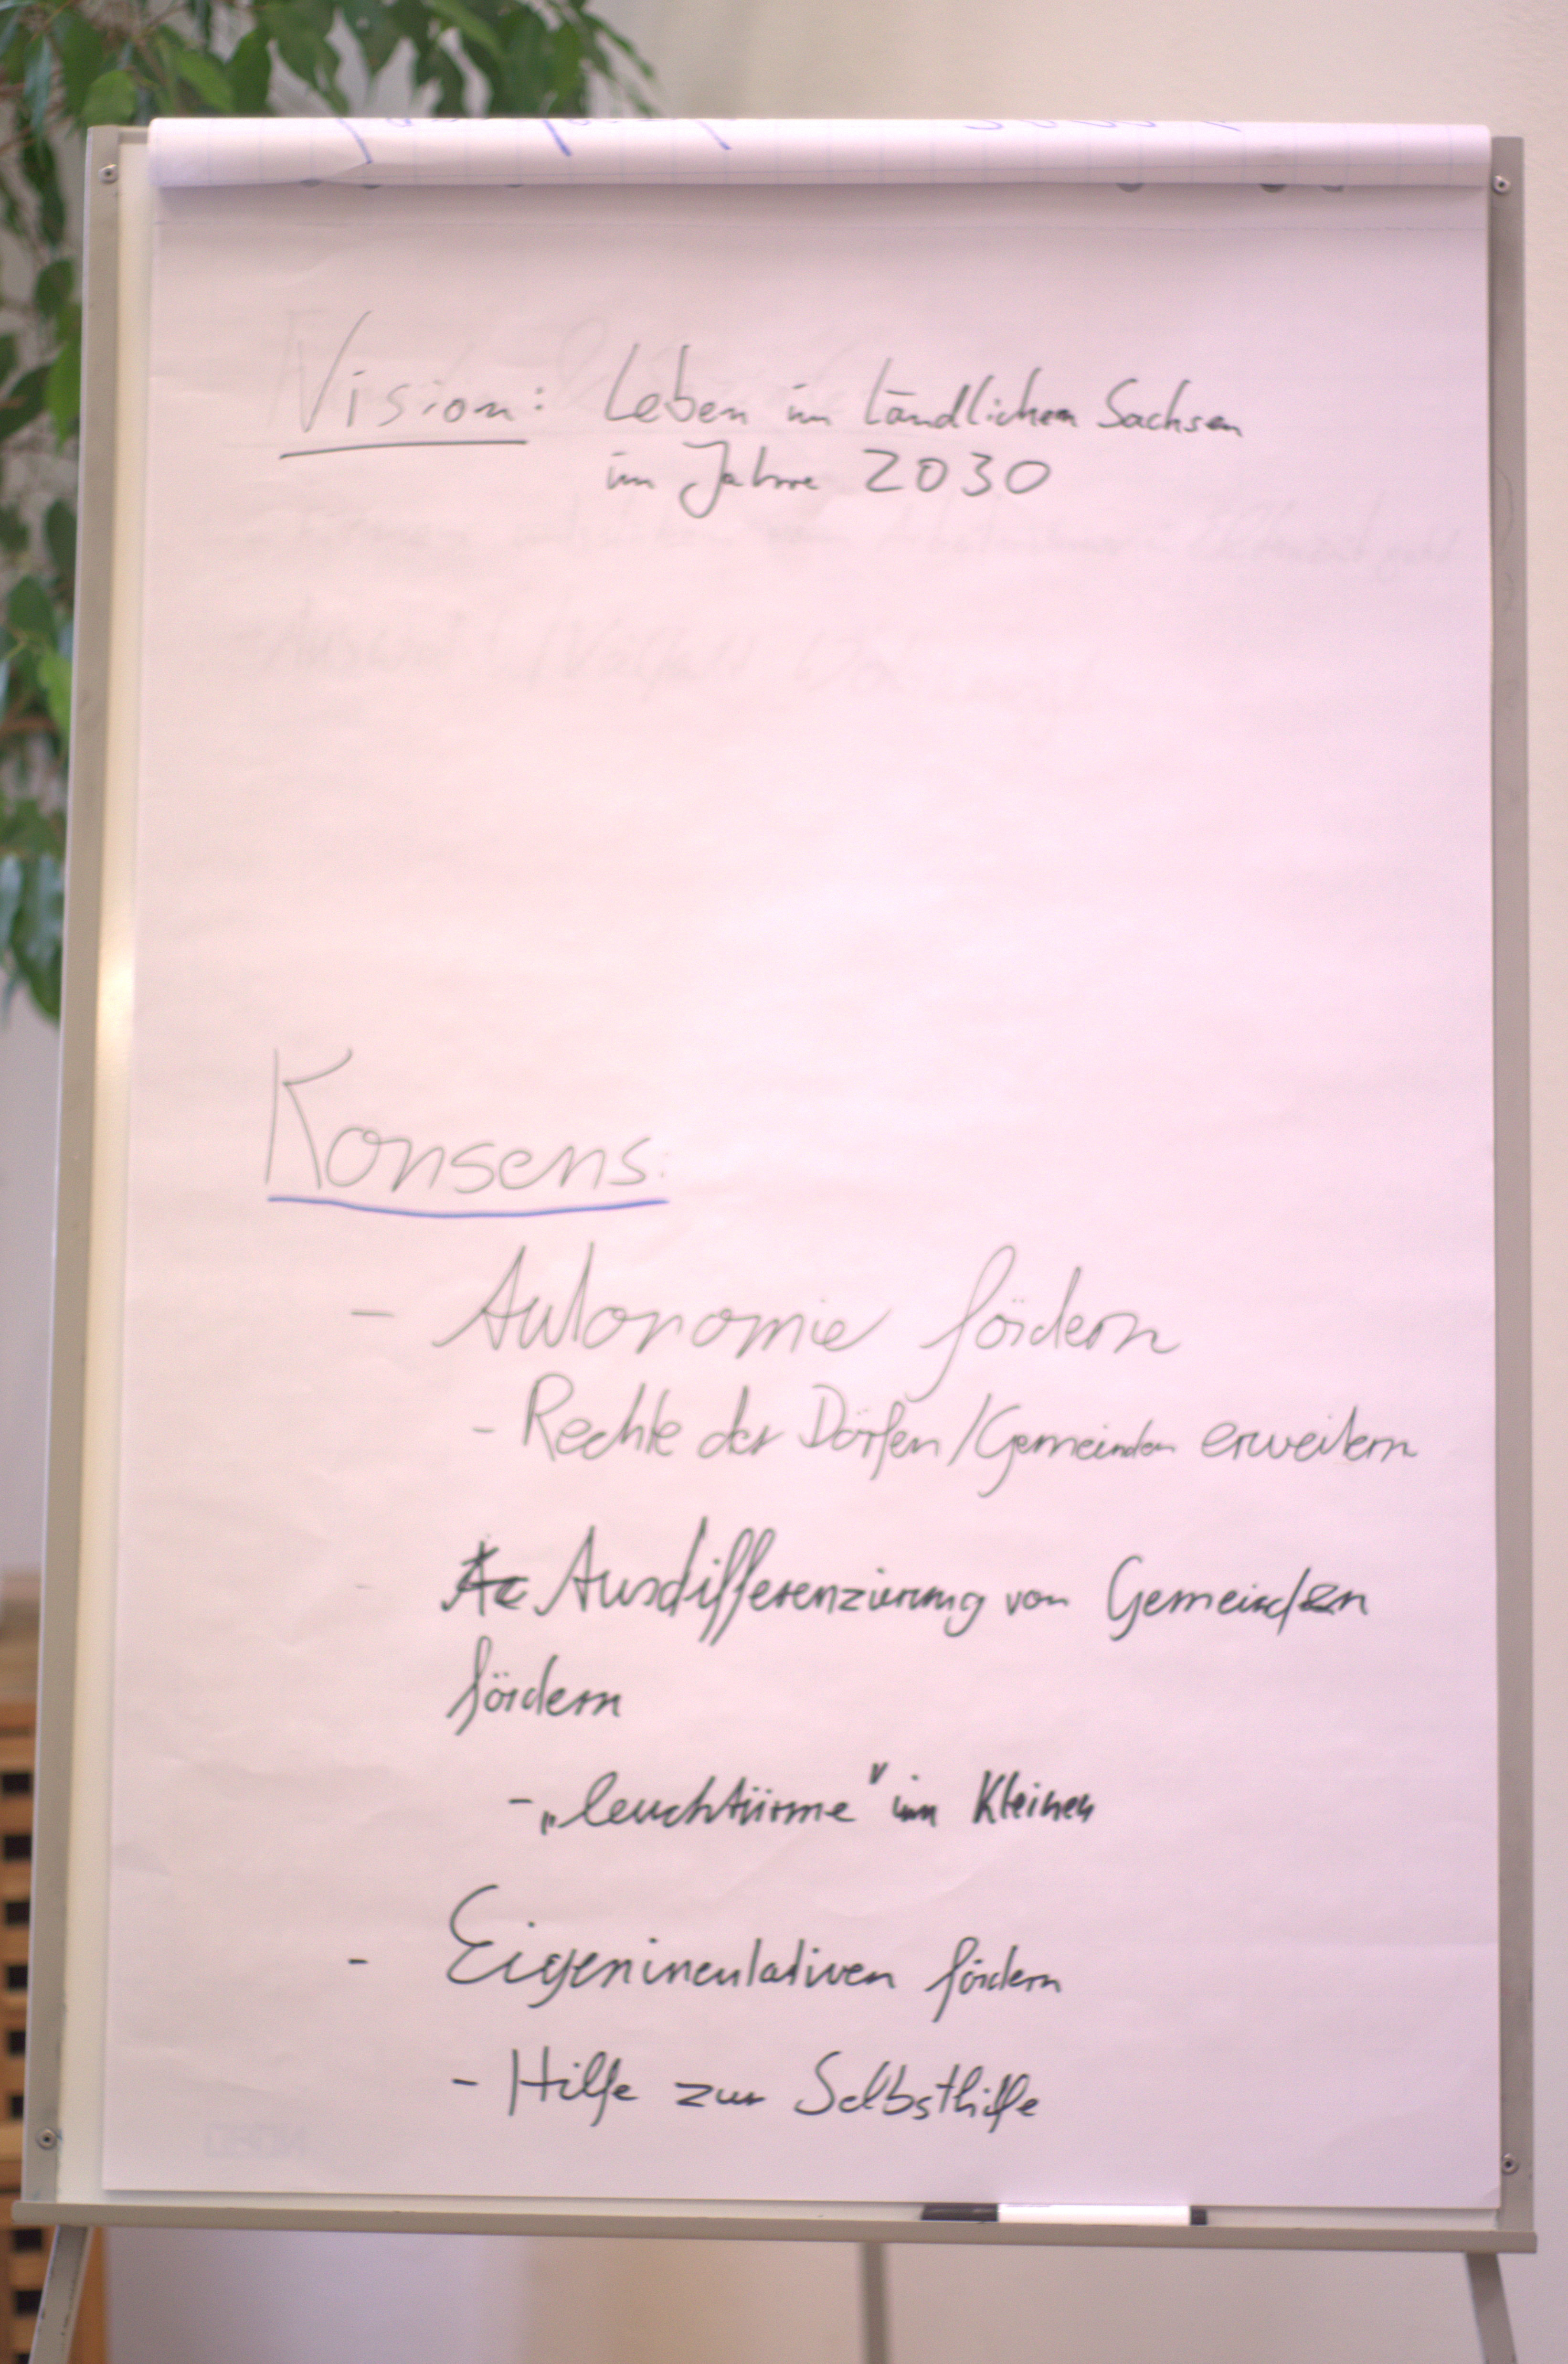 Vision: Leben im ländlichen Sachsen
im Jahre 2030
Konsens:
- Autonomie fördern
- Rechte der Dörfen/Gemeinden erweitern
- Ausdifferenzierung von Gemeinden
fördern
- „leuchtürme" im Kleinen
- fördern
- Hilfe zur Selbsthilfe